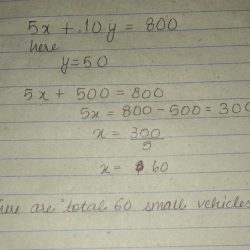 5x + .10y = 800
here
y=50
5x + 500 = 800
5x = 800 - 500 = 300
x = 300/5
x = 60
there are total 60 small vehicles